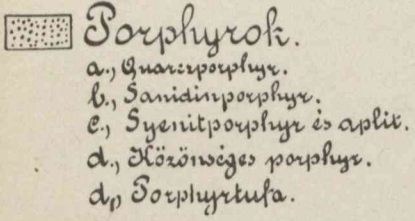 Porphyrok.
a., Quarzporphyr.
b., Sanidinporphyr.
c., Syenitporphyr és aplit.
d., Közönséges porphyr.
d,, Porphyrtufa.